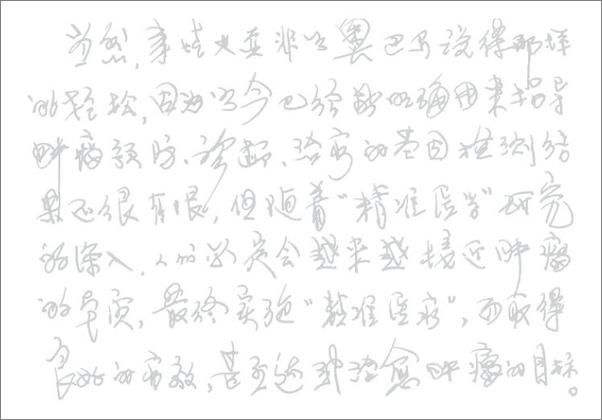 当然，事情又并非如奥巴马说得那样
的轻松，因为如今已经能明确用来指导
肿瘤预防、诊断、治疗的基因检测结
果还很有限，但随着“精准医学”研究
的深入，人们必定会越来越接近肿瘤
的本质，最终实施“精准医疗”，而取得
良好的疗效，甚至达到治愈肿瘤的目标。